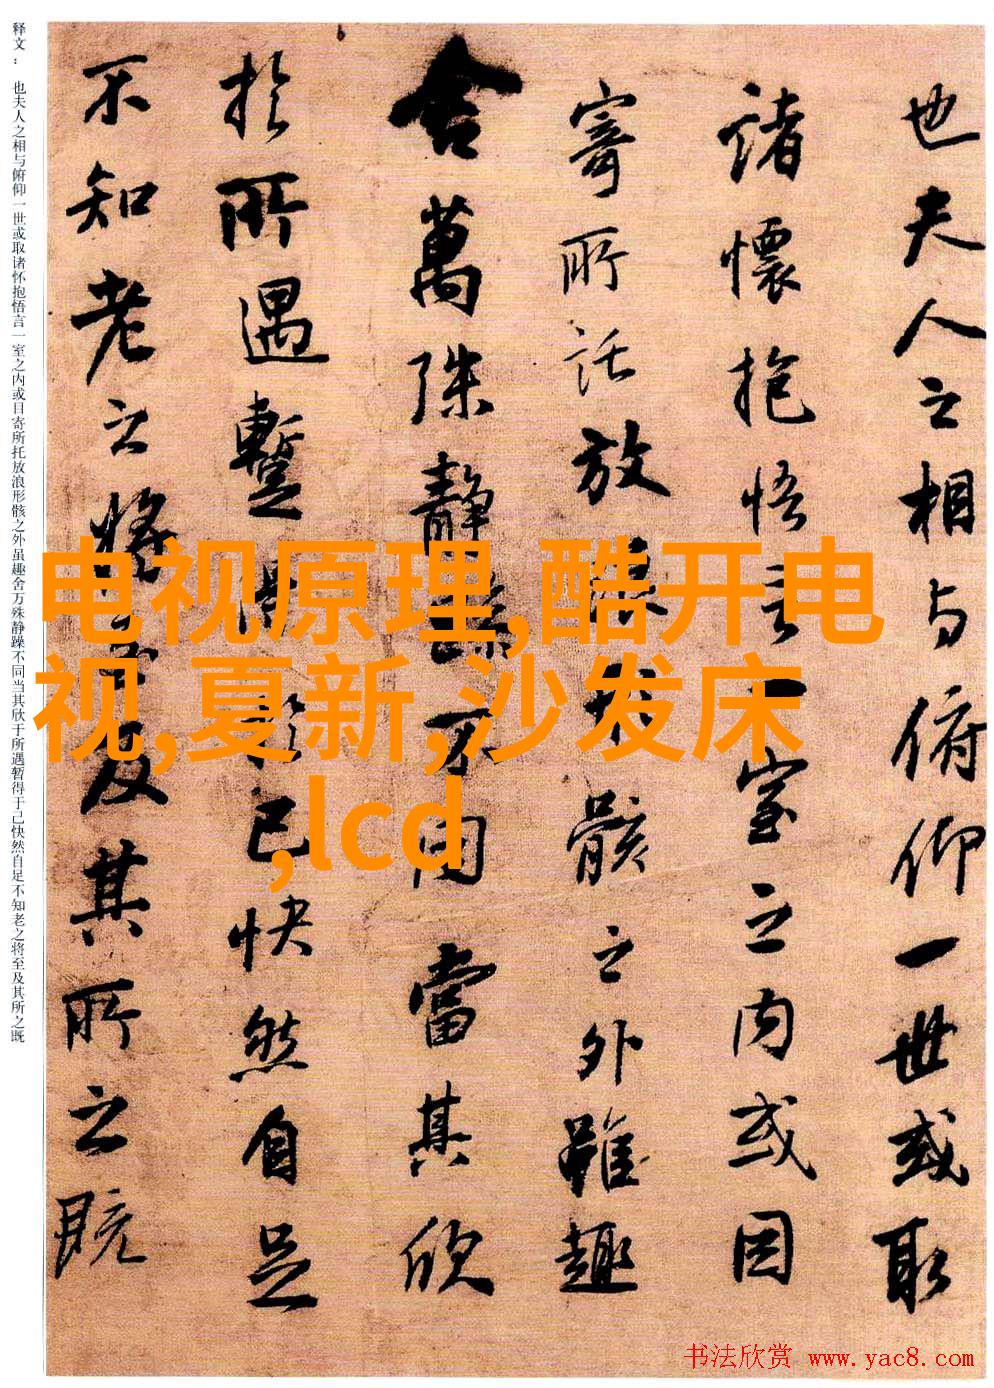 也夫人之相与俯仰一世或取
諸懷抱悟言一室之内或因
寄所託放浪形骸之外雖趣
舍萬殊静躁不同當其欣
於所遇蹔得於己快然自足
不知老之將至及其所之既
释文： 也夫人之相与俯仰一世或取诸怀抱悟言一室之内或目寄所托放浪形骸之外虽趣舍万殊静躁不同当其欣于所遇暂得于己快然自足不知老之将至及其所之既
电视原理,酷开电
视,夏新,沙发床
,lcd
书法欣赏 www.yac8.com